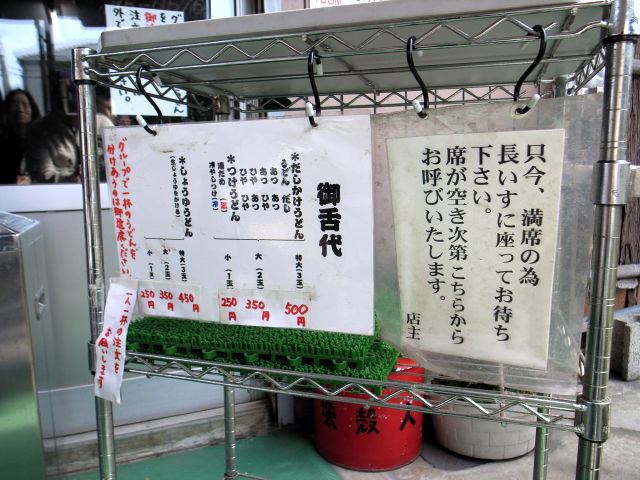 御舌代
*だしかけうどん
うどん だし
あつ あつ
ひや あつ
ひや ひや
*つけうどん
湯だめ
冷やしつけ
特大(3玉)
大(2玉)
小(1玉)
500円
350円
250円
*しょうゆうどん
(生じょうゆをかける)
特大(3玉)
大(2玉)
小(1玉)
450円
350円
250円
グループで一杯のうどんを
付けあうのは御遠慮ください
一人一杯の注文を
お願いします
只今、満席の為
長いすに座ってお待ち
下さい。
席が空き次第こちらから
お呼びいたします。
店主